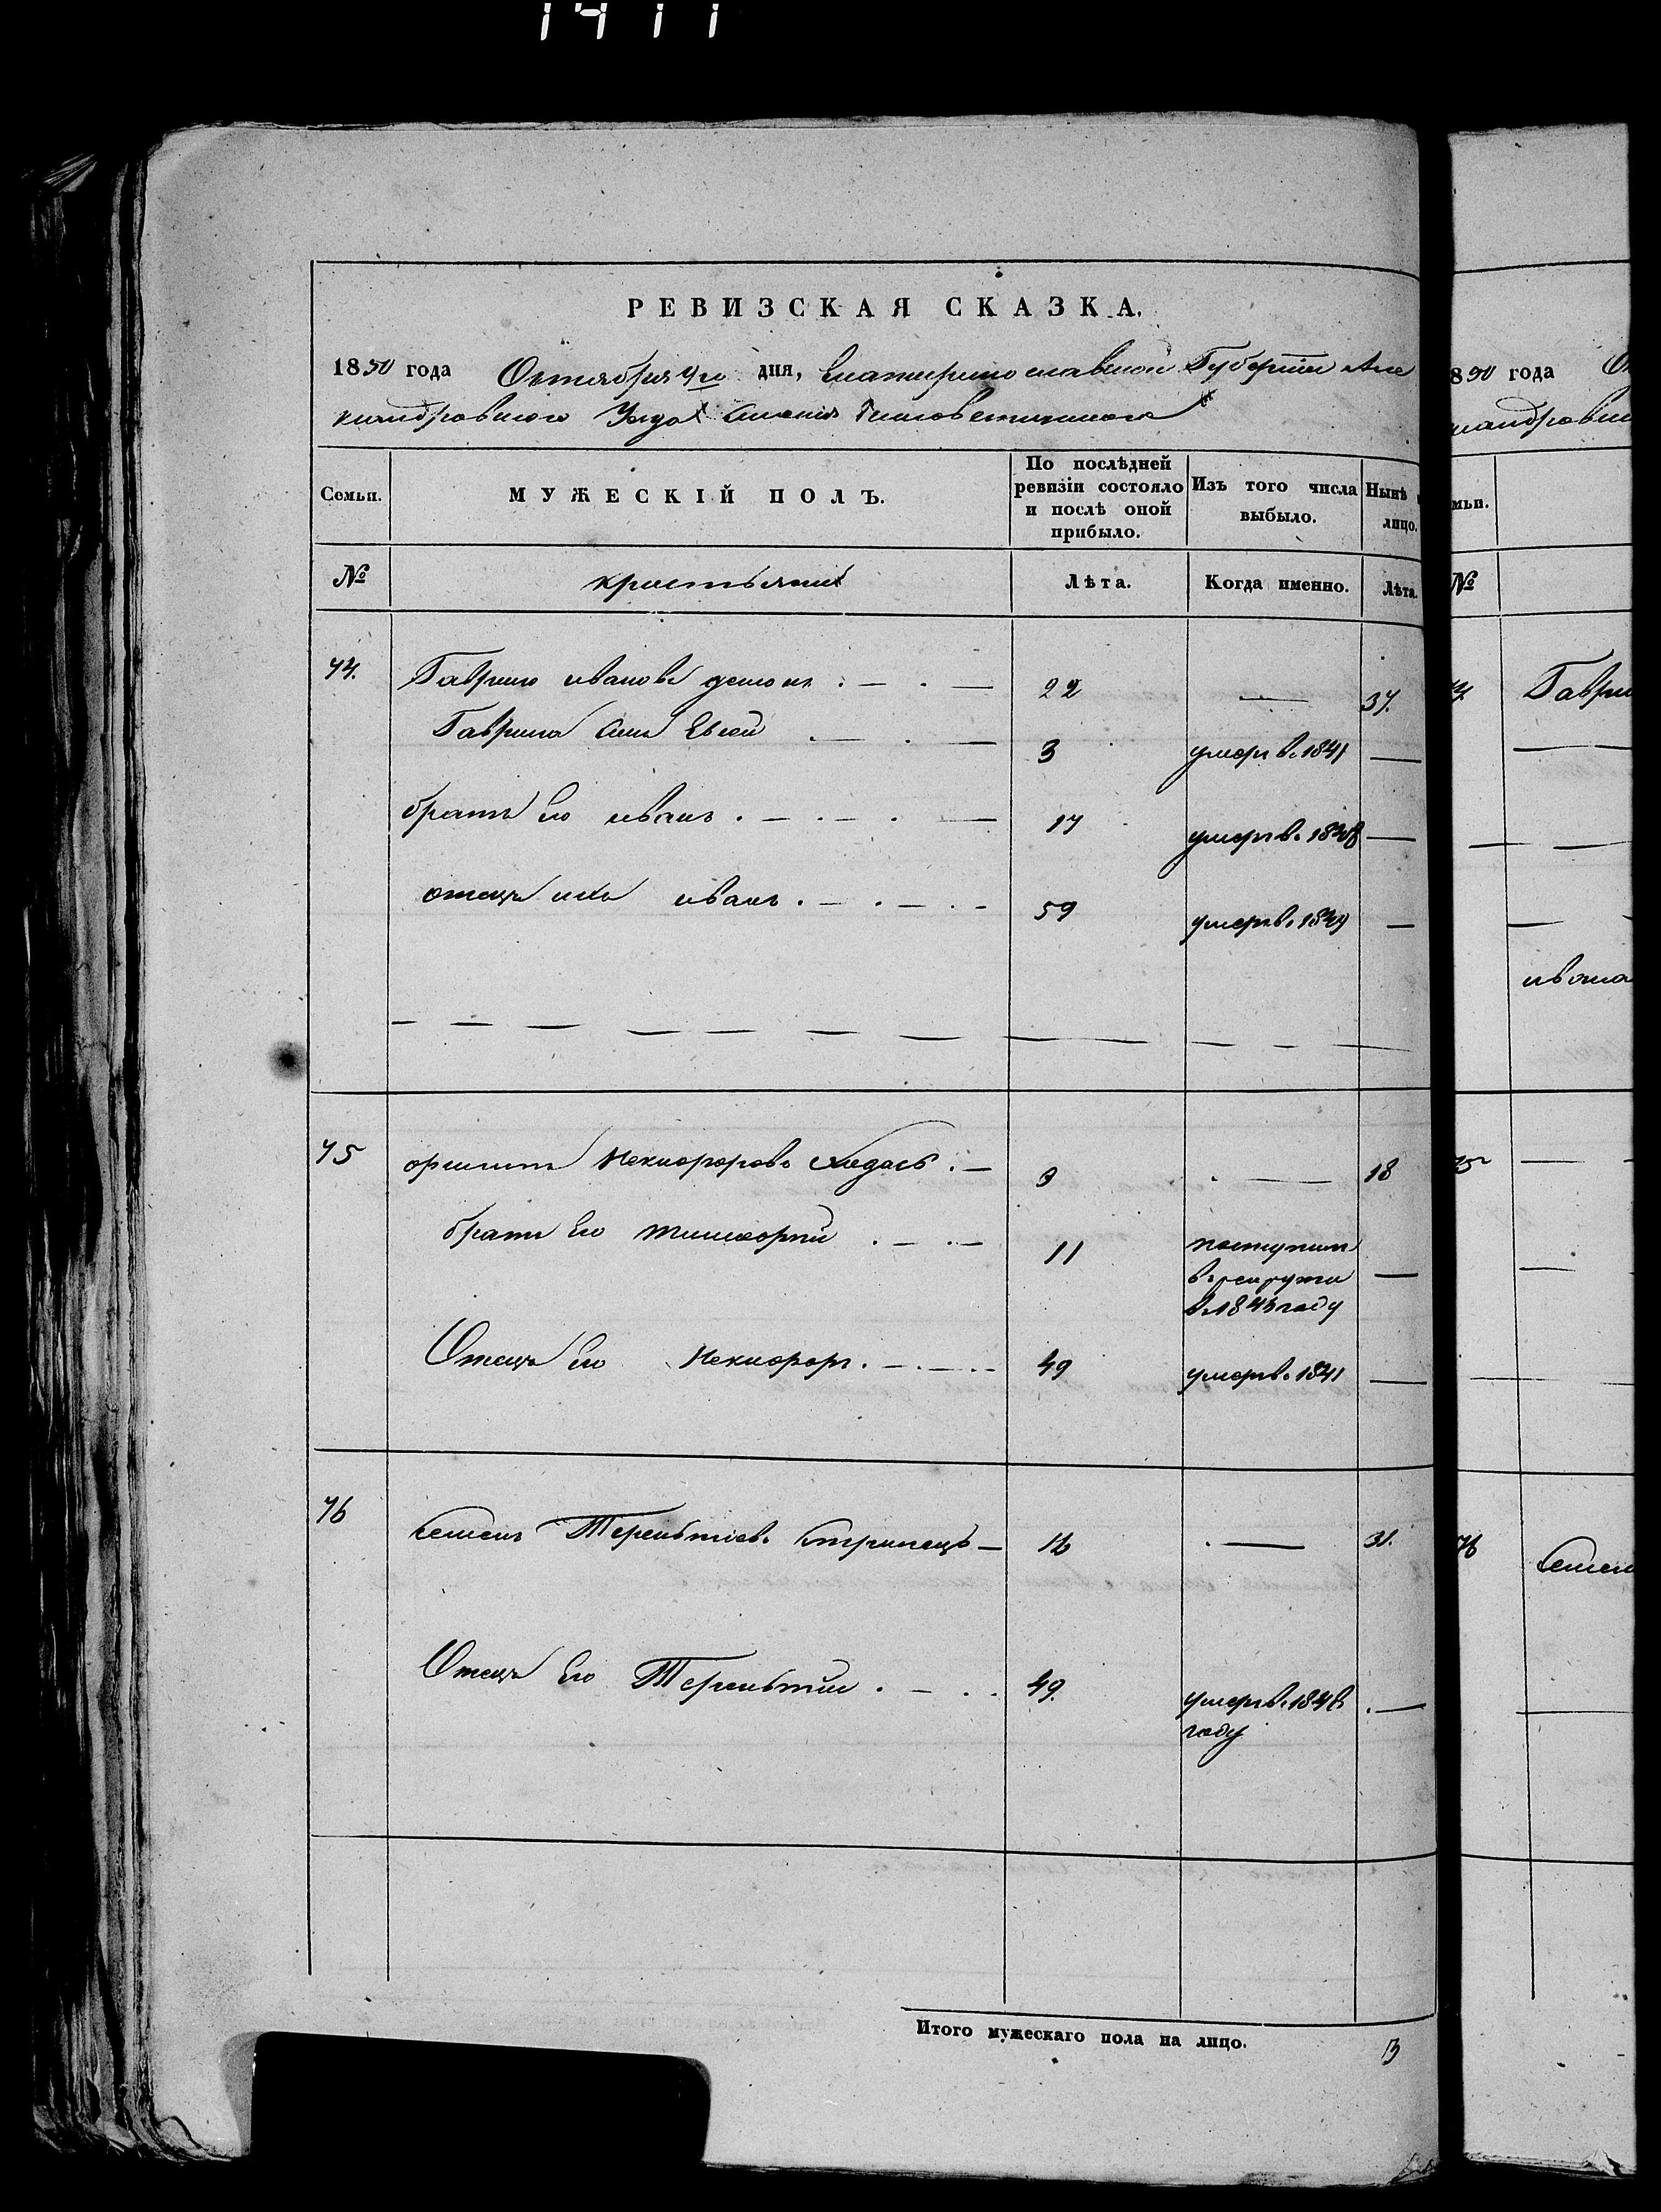 1411
РЕВИЗСКАЯ СКАЗКА.
1850 года Октября дня, Екатеринославской Губерніи Але
ксандровского Уезда имения
Семьи.
МУЖЕСКІЙ ПОЛЪ.
По послѣдней ревизіи состояло и послѣ оной прибыло.
Изъ того числа выбыло.
Нынѣ
лицо.
№
крестьяне
Лѣта.
Когда именно.
Лѣта.
74. Гаврило Ивановъ 22 — 37.
Гаврила сын Евсей 3 умеръ въ 1841 —
братъ его иванъ 17 умеръ въ 1838 —
отецъ ихъ иванъ 59 умеръ въ 1839 —
75 Некифоровъ 3 — 18
братъ его Тимофій 11 поступил
в рекруты —
в 1843 году
Отецъ его Некифоръ 49 умеръ въ 1841 —
76 Семенъ Терентіевъ 16 — 31.
Отецъ его Терентій 49. умеръ въ 1846 —
году
Итого мужескаго пола на лицо. 3
850 года
ксандровск
мьи.
№
74 Гаври
ивана
75
76 Семен